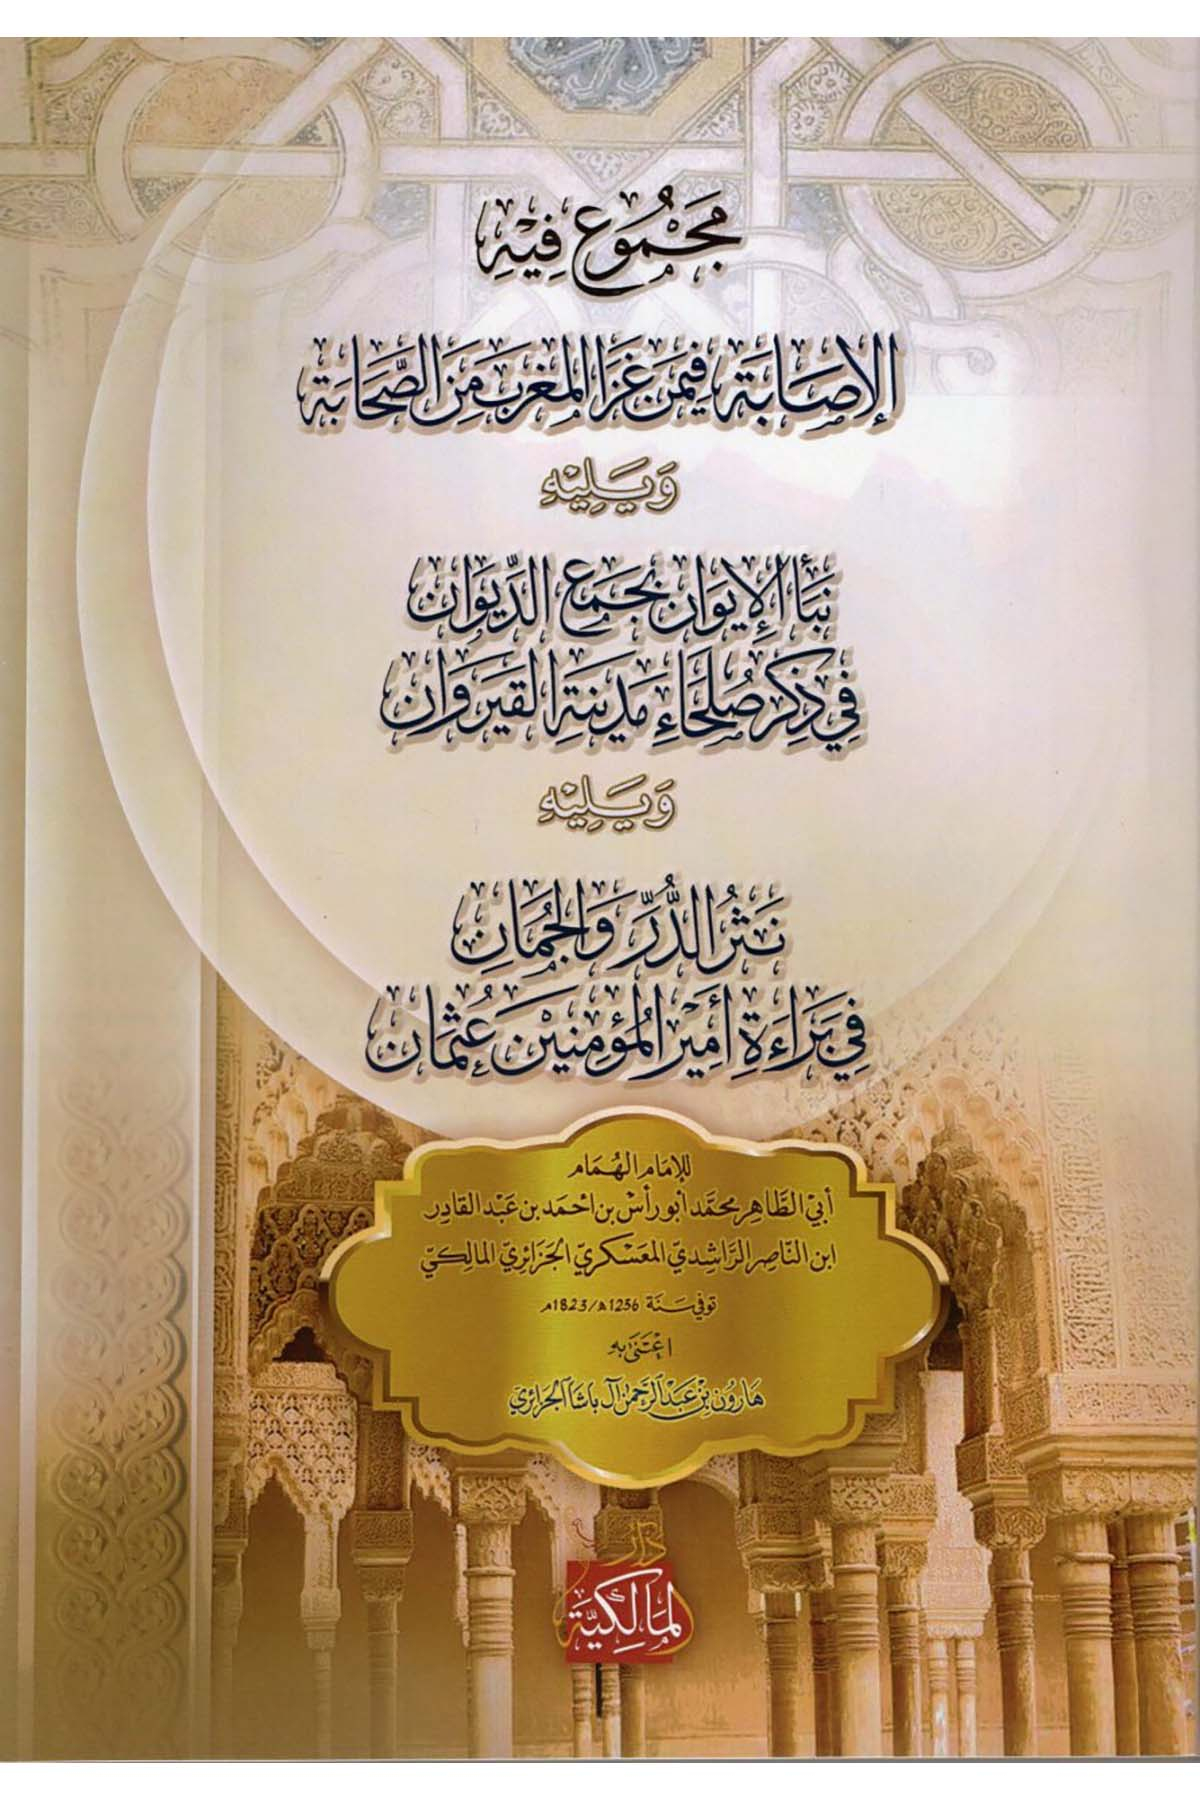 مَجْمُوعٌ فِيْهِ
الإِصَابَة فِيمَن غَزَا المَغرِب مِنَ الصَّحَابَة
وَيَلِيْهِ
نَبَأ الإِيوَان بِجَمع الدِّيوَان
فِي ذِكرِ صُلَحَاءِ مَدِينَةِ القَيرَوَان
وَيَلِيْهِ
نَثرُ الدُّرِّ وَالجُمَانِ
فِي بَرَاءَةِ أَمِيْرِ المُؤمِنِيْنَ عُثمَان
للإِمَام الهُمَام
أبي الطَّاهِر محمَّد أبو رأس بن أحمَد بن عَبد القَادِر
ابن النَّاصِر الرَّاشِدي المعَسكري الجَزَائِري المالِكيّ
توفي سَنَة 1236ه/1823م
اعْتَنَى بِهِ
هَارُون بن عَبد الرَّحمن آل بَاشَا الجَزَائِري
دَارُ
المَالِكيَّة